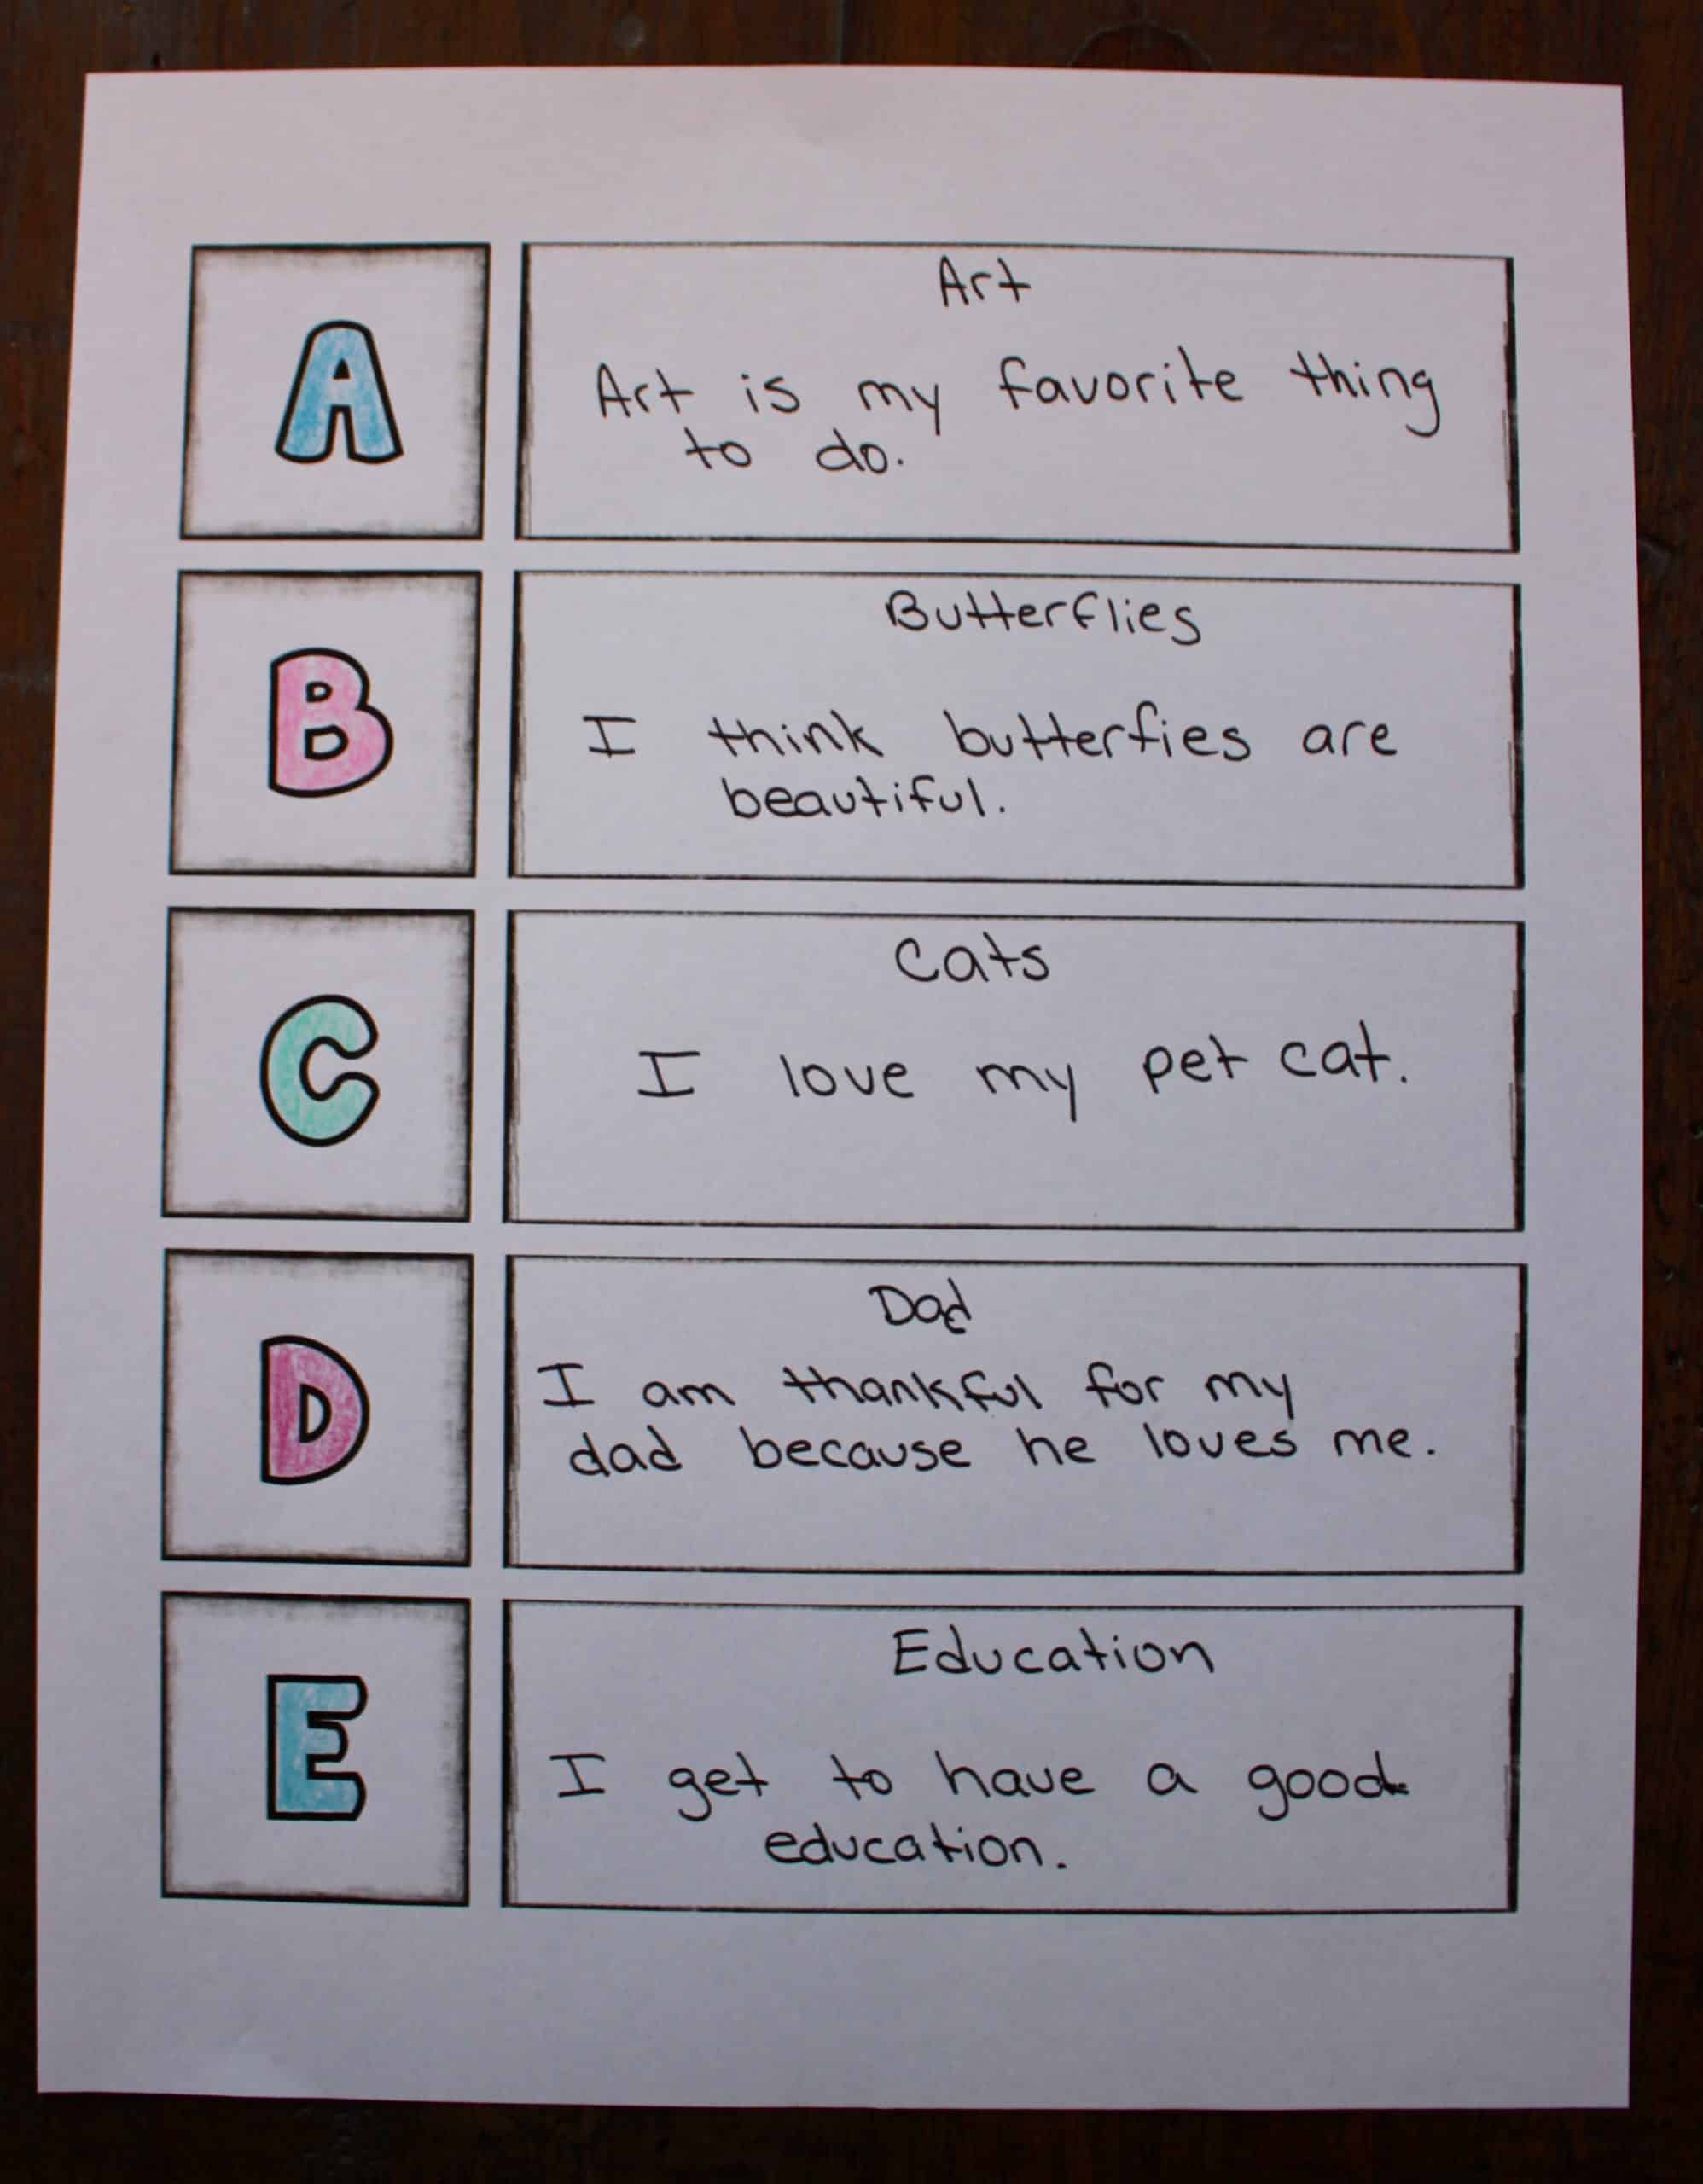 A
Art
Art is my favorite thing
to do.
B
Butterflies
I think butterfies are
beautiful.
C
Cats
I love my pet cat.
D
Dad
I am thankful for my
dad because he loves me.
E
Education
I get to have a good
education.